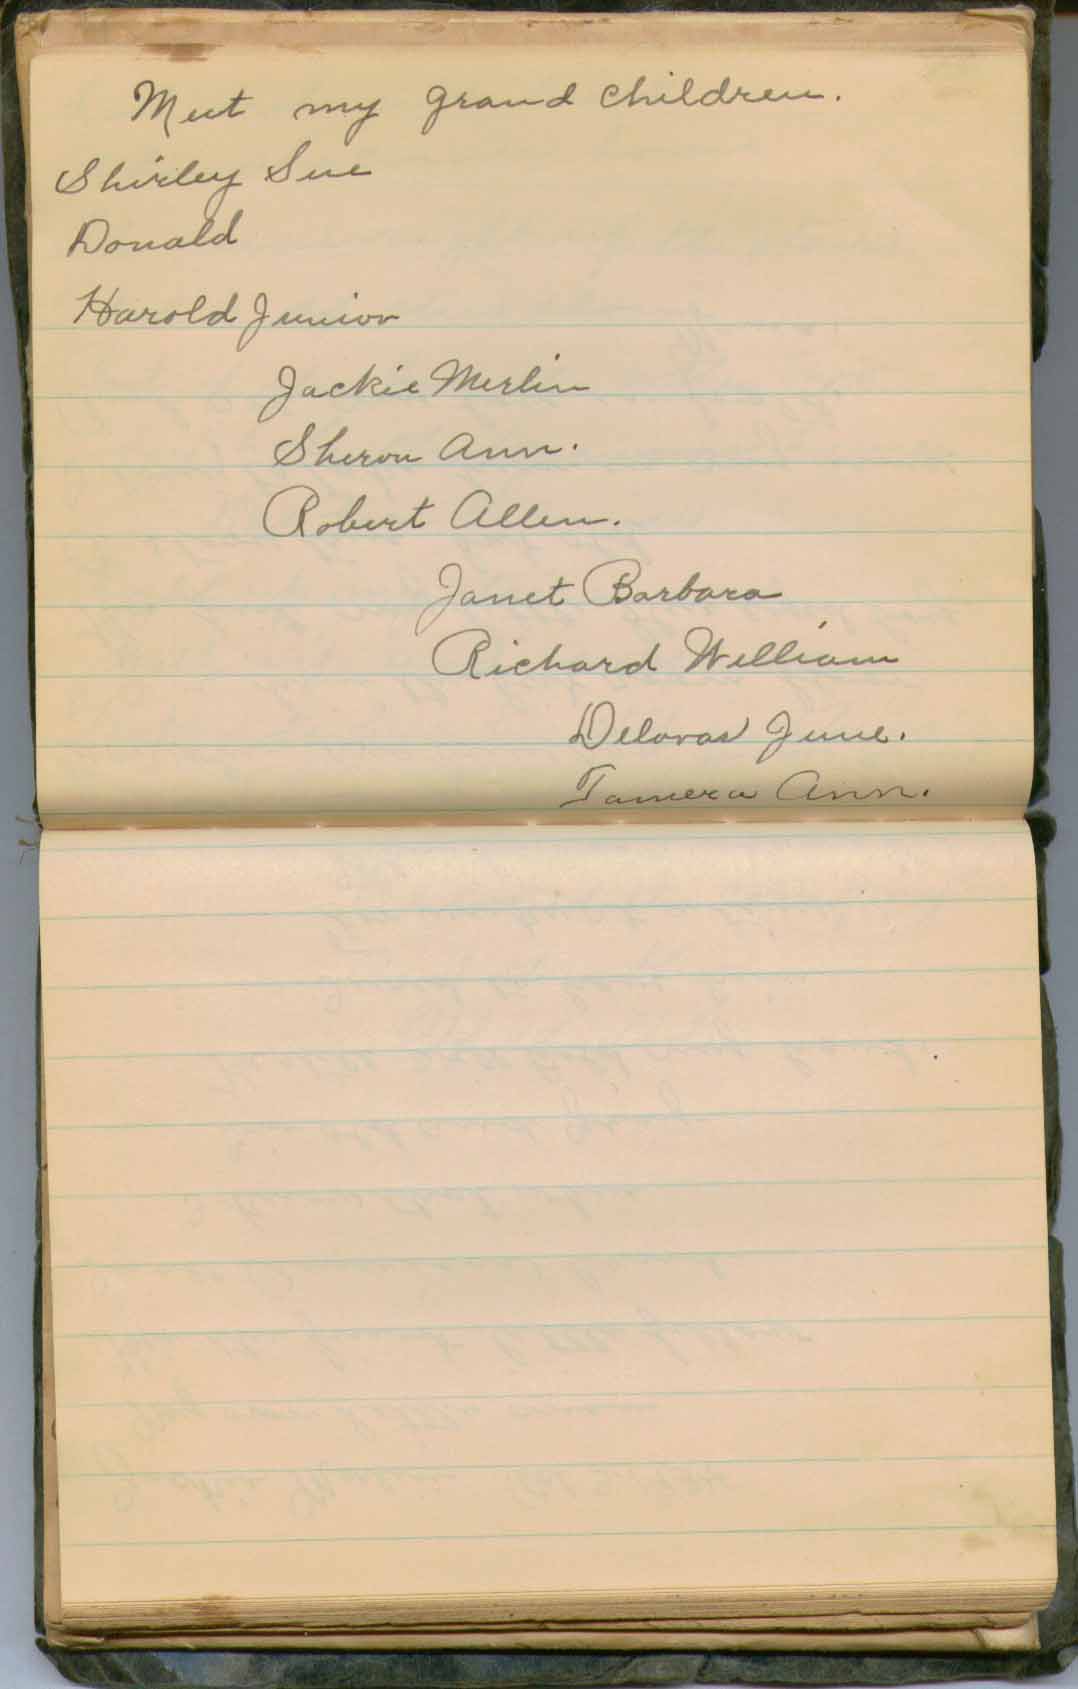 Meet my grand children.
Shirley Sue
Donald
Harold Junior
Jackie Merlin
Sheron Ann.
Robert Allen.
Janet Barbara
Richard William
Deloras June.
Tamera Ann.